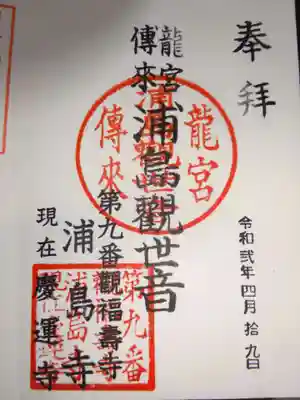 奉拝
令和弐年四月拾九日
龍宮
傳來
浦島觀世音
第九番觀福壽寺
浦島寺
現在慶運寺
龍宮
傳來
浦島觀世音
第九番